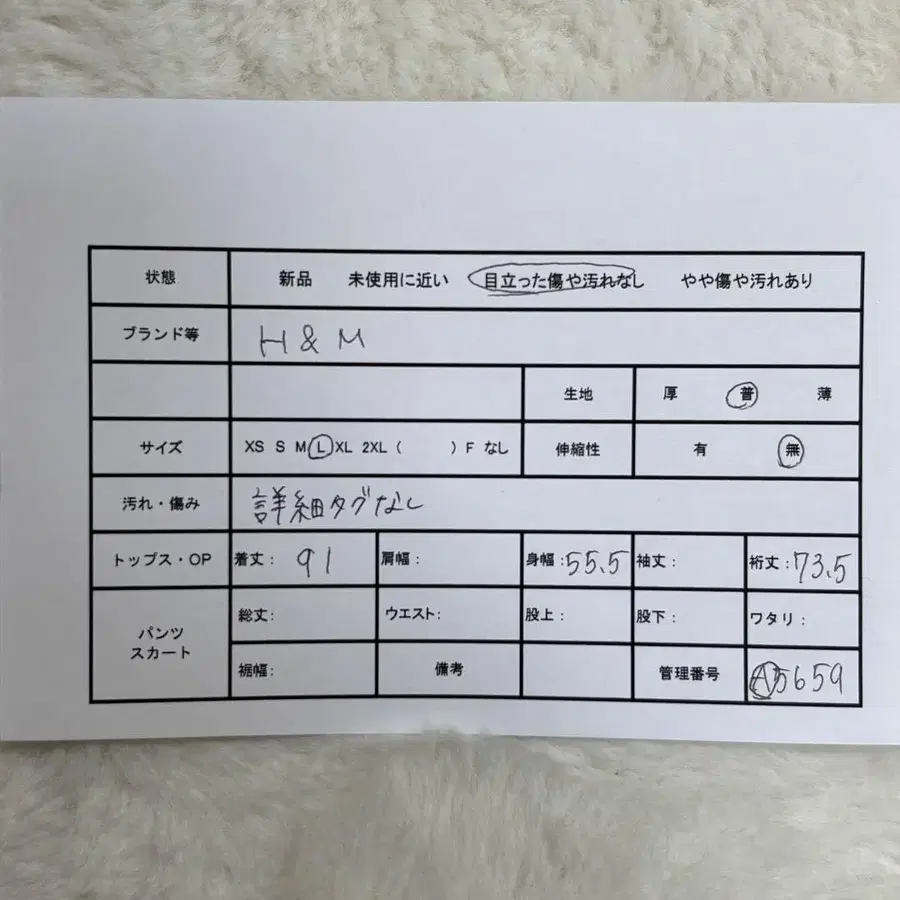 状態 新品 未使用に近い 目立った傷や汚れなし やや傷や汚れあり
ブランド等 H & M
生地 厚 普 薄
サイズ XS S M L XL 2XL ( ) F なし 伸縮性 有 無
汚れ・傷み 詳細タグなし
トップス・OP 着丈: 91 肩幅: 身幅: 55.5 袖丈: 裄丈: 73.5
パンツ
スカート
総丈: ウエスト: 股上: 股下: ワタリ:
裾幅: 備考 管理番号 A5659